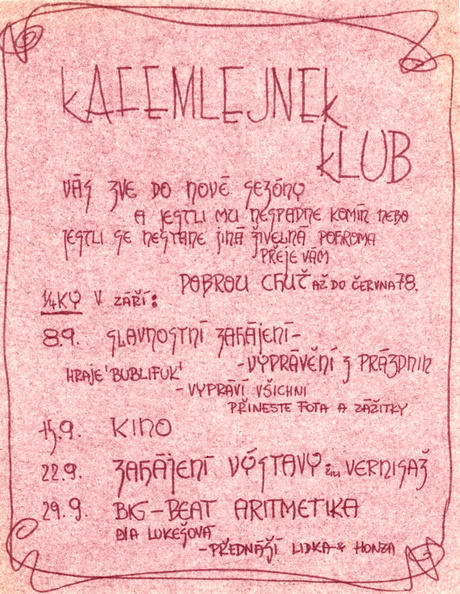 KAFEMLEJNEK
KLUB
VÁS ZVE DO NOVÉ SEZÓNY
A JESTLI MU NESPADNE KOMÍN NEBO
JESTLI SE NESTANE JINÁ ŽIVELNÁ POHROMA
PŘEJE VÁM
DOBROU CHUŤ AŽ DO ČERVNA 78.
¼KY V ZÁŘÍ:
8.9. SLAVNOSTNÍ ZAHÁJENÍ-
-VYPRÁVĚNÍ Z PRÁZDNIN
HRAJE 'BUBLIFUK'
-VYPRAVÍ VŠICHNI
PŘINESTE FOTA A ZÁŽITKY
15.9. KINO
22.9. ZAHÁJENÍ VÝSTAVY ČILI VERNISÁŽ
29.9. BIG-BEAT ARITMETIKA
DIA LUKEŠOVÁ
-PŘEDNÁŠÍ LIDKA + HONZA